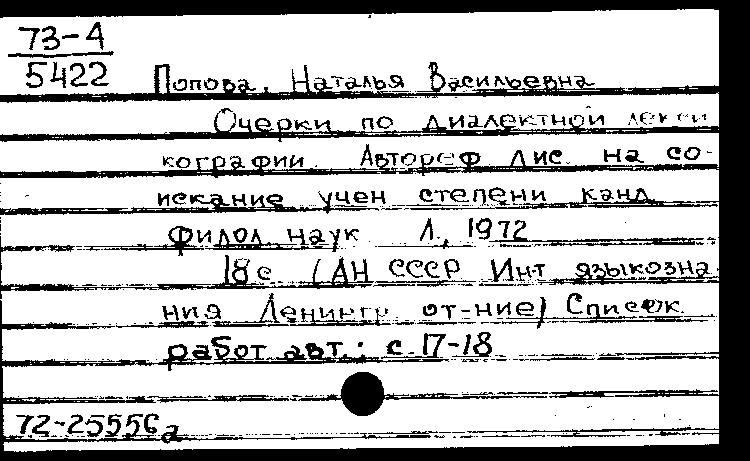 73-4
5422
Попова, Наталья Васильевна
Очерки по диалектной лекси
кографии. Автореф дис. на со-
искание учен степени канд
филол наук Л., 1972
18 с (АН СССР Инт языкозна-
ния Ленингр от-ние) Список
работ авт.: с. 17-18
72-25556а